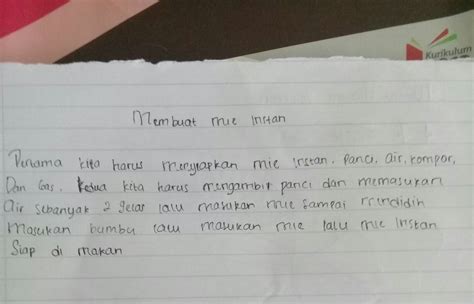 Kurikulum
Membuat mie instan
Pertama kita harus menyiapkan mie instan, Panci, air, kompor,
Dan Gas. Kedua kita harus mengambil panci dan memasukan
air sebanyak 2 gelas lalu masukan mie sampai mendidih
Masukan bumbu lalu masukan mie lalu mie instan
Siap di makan